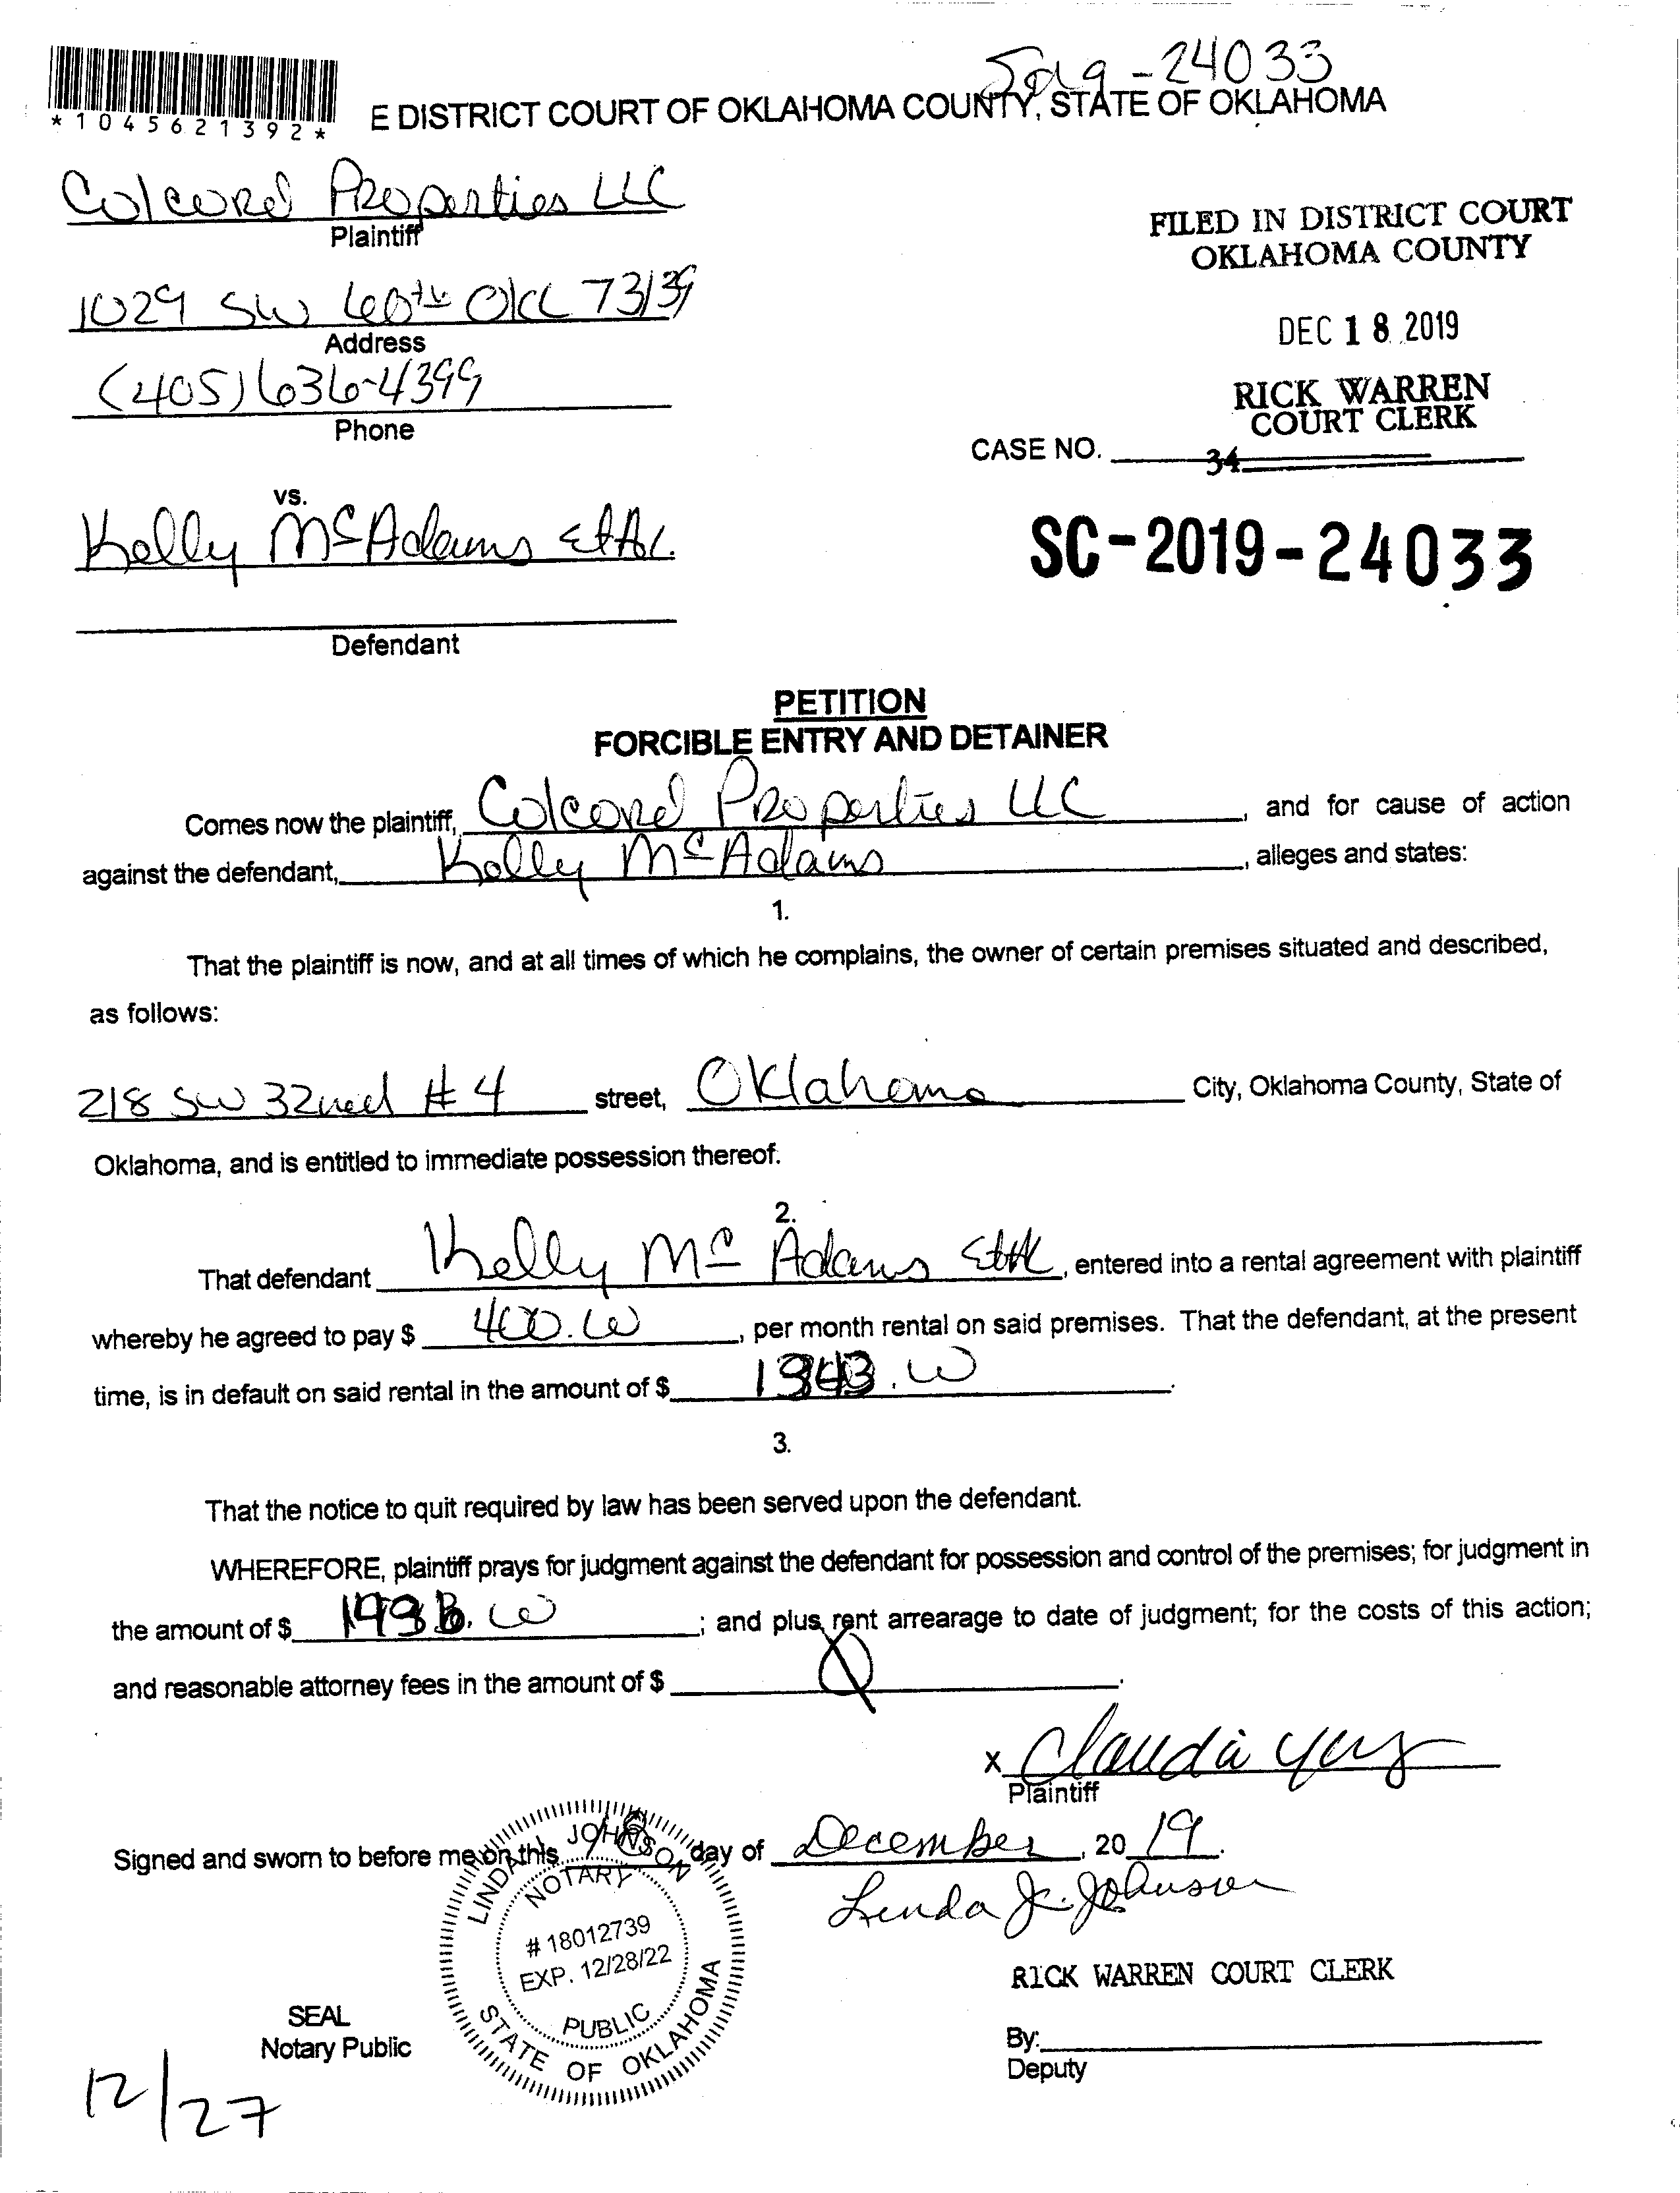 5019-24033
*1045621392*
E DISTRICT COURT OF OKLAHOMA COUNTY, STATE OF OKLAHOMA
Colcord Properties LLC
Plaintiff
FILED IN DISTRICT COURT
OKLAHOMA COUNTY
1029 SW 60th OKC 73139
Address
DEC 18 2019
(405) 636-4399
Phone
RICK WARREN
COURT CLERK
CASE NO.
34
vs.
Kelly McAdams Et Al.
SC-2019-24033
Defendant
PETITION
FORCIBLE ENTRY AND DETAINER
Comes now the plaintiff, Colcord Properties LLC, and for cause of action
against the defendant, Kelly McAdams, alleges and states:
1.
That the plaintiff is now, and at all times of which he complains, the owner of certain premises situated and described,
as follows:
218 SW 32nd #4 street, Oklahoma City, Oklahoma County, State of
Oklahoma, and is entitled to immediate possession thereof.
2.
That defendant Kelly McAdams Et Al, entered into a rental agreement with plaintiff
whereby he agreed to pay $ 400.00, per month rental on said premises. That the defendant, at the present
time, is in default on said rental in the amount of $
3.
That the notice to quit required by law has been served upon the defendant.
WHEREFORE, plaintiff prays for judgment against the defendant for possession and control of the premises; for judgment in
the amount of $ ; and plus rent arrearage to date of judgment; for the costs of this action;
and reasonable attorney fees in the amount of $
X Claudia
Plaintiff
Signed and sworn to before me on this 18 day of December, 2019.
Linda J. Johnson
LINDA J. JOHNSON
NOTARY
# 18012739
EXP. 12/28/22
PUBLIC
STATE OF OKLAHOMA
RICK WARREN COURT CLERK
SEAL
Notary Public
By:
Deputy
12/27